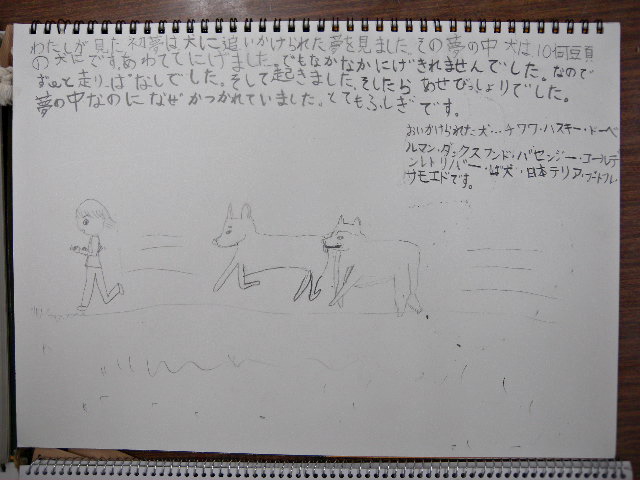 わたしが見た初夢は犬に追いかけられた夢を見ました。その夢の中犬は10何豆頁
の犬にです。あわててにげました。でもなかなかにげきれませんでした。なので
ずーっと走りっぱなしでした。そして起きました。そしたらあせびっしょりでした。
夢の中なのになぜかつかれていました。とてもふしぎです。
おいかけられた犬…チワワ・ハスキー・ドーベ
ルマン・ダックスフンド・バセンジー・ゴールデ
ンレトリバー・は犬・日本テリア・プードル
サモエドです。